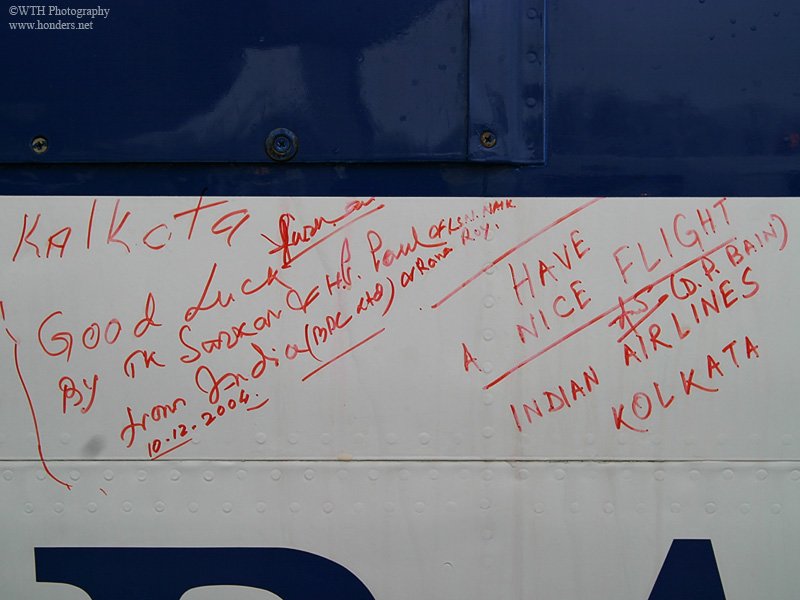 ©WTH Photography
www.honders.net
Kalkota
Good Luck
By TK Sarkar & H.P. Paul & LSN. NAIK
from India (BPC Ltd) & Rama Roy.
10.12.2004
HAVE
A NICE FLIGHT
(D.P. BAIN)
INDIAN AIRLINES
KOLKATA